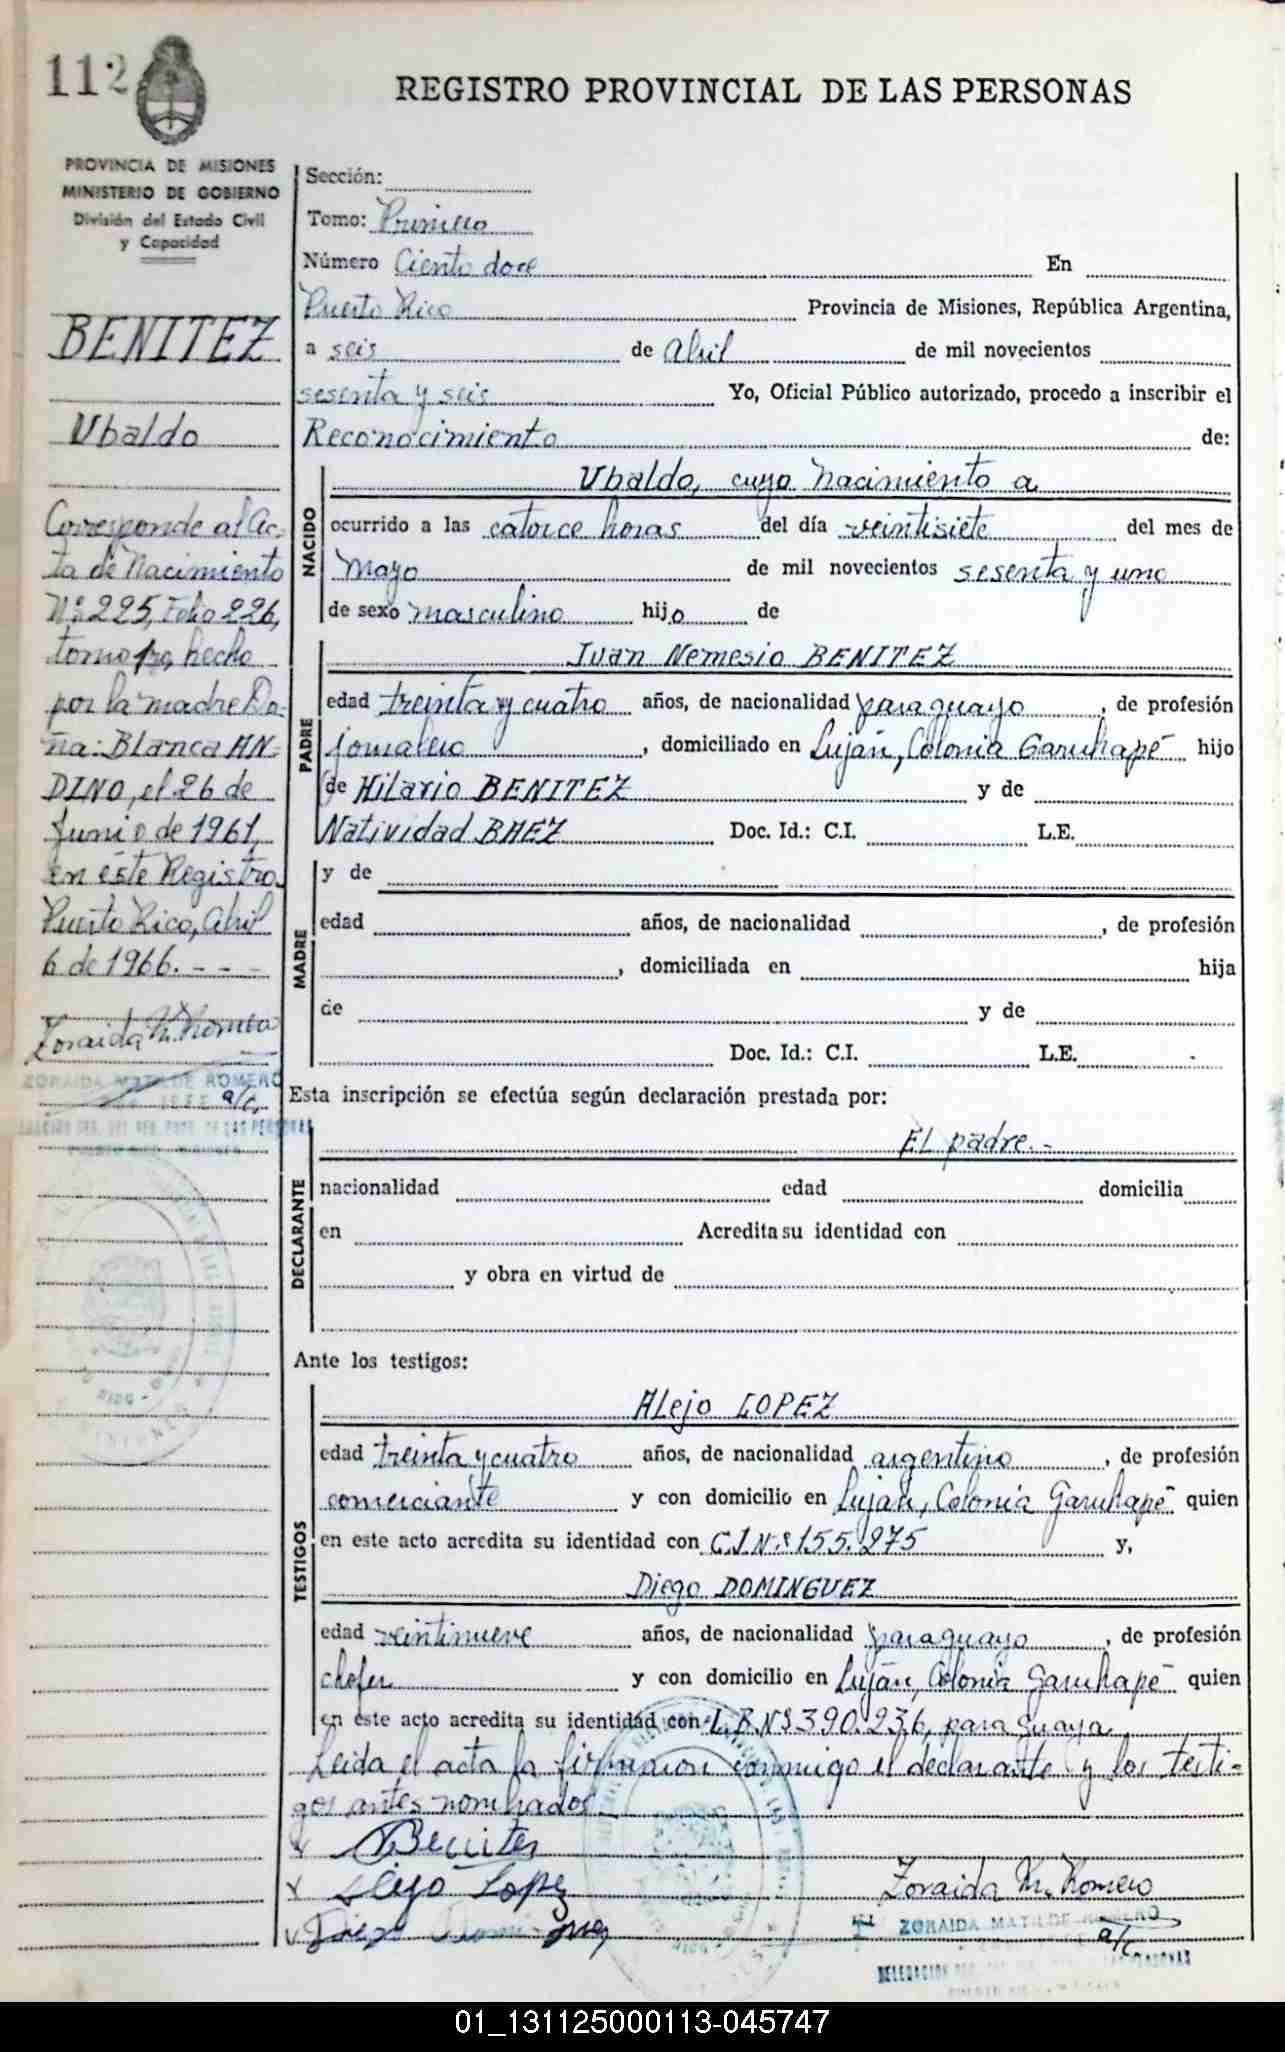 112
REGISTRO PROVINCIAL DE LAS PERSONAS
PROVINCIA DE MISIONES
MINISTERIO DE GOBIERNO
División del Estado Civil
y Capacidad
BENITEZ
Ubaldo
Corresponde al Ac-
ta de Nacimiento
Nº 225, Folio 226,
tomo 1ro, hecho
por la madre Do-
ña: Blanca AN-
DINO, el 26 de
Junio de 1961,
en éste Registro.
Puerto Rico, Abril
6 de 1966. - - -
Zoraida M. Romero
ZORAIDA MATILDE ROMERO
JEFE a/c.
Sección:
Tomo: Primero
Número Ciento doce En
Puerto Rico Provincia de Misiones, República Argentina,
a seis de Abril de mil novecientos
sesenta y seis Yo, Oficial Público autorizado, procedo a inscribir el
Reconocimiento de:
NACIDO
Ubaldo, cuyo nacimiento a
ocurrido a las catorce horas del día veintisiete del mes de
Mayo de mil novecientos sesenta y uno
de sexo masculino hijo de
PADRE
Juan Nemesio BENITEZ
edad treinta y cuatro años, de nacionalidad paraguayo, de profesión
jornalero, domiciliado en Luján, Colonia Garuhapé hijo
de Hilario BENITEZ y de
Natividad BAEZ Doc. Id.: C.I. L.E.
MADRE
y de
edad años, de nacionalidad , de profesión
, domiciliada en hija
de y de
Doc. Id.: C.I. L.E.
Esta inscripción se efectúa según declaración prestada por:
DECLARANTE
El padre.-
nacionalidad edad domicilia
en Acredita su identidad con
y obra en virtud de
Ante los testigos:
TESTIGOS
Alejo LOPEZ
edad treinta y cuatro años, de nacionalidad argentino, de profesión
comerciante y con domicilio en Luján, Colonia Garuhapé quien
en este acto acredita su identidad con C.I Nº 155.275 y,
Diego DOMINGUEZ
edad veintinueve años, de nacionalidad paraguayo, de profesión
chofer y con domicilio en Luján, Colonia Garuhapé quien
en este acto acredita su identidad con L.B.Nº 390.236, paraguaya
Leida el acta la firmaron conmigo el declarante y los testi-
gos antes nombrados.
x Benites
x Alejo Lopez
x Diego
Zoraida M. Romero
ZORAIDA MATILDE ROMERO
a/c
01_131125000113-045747